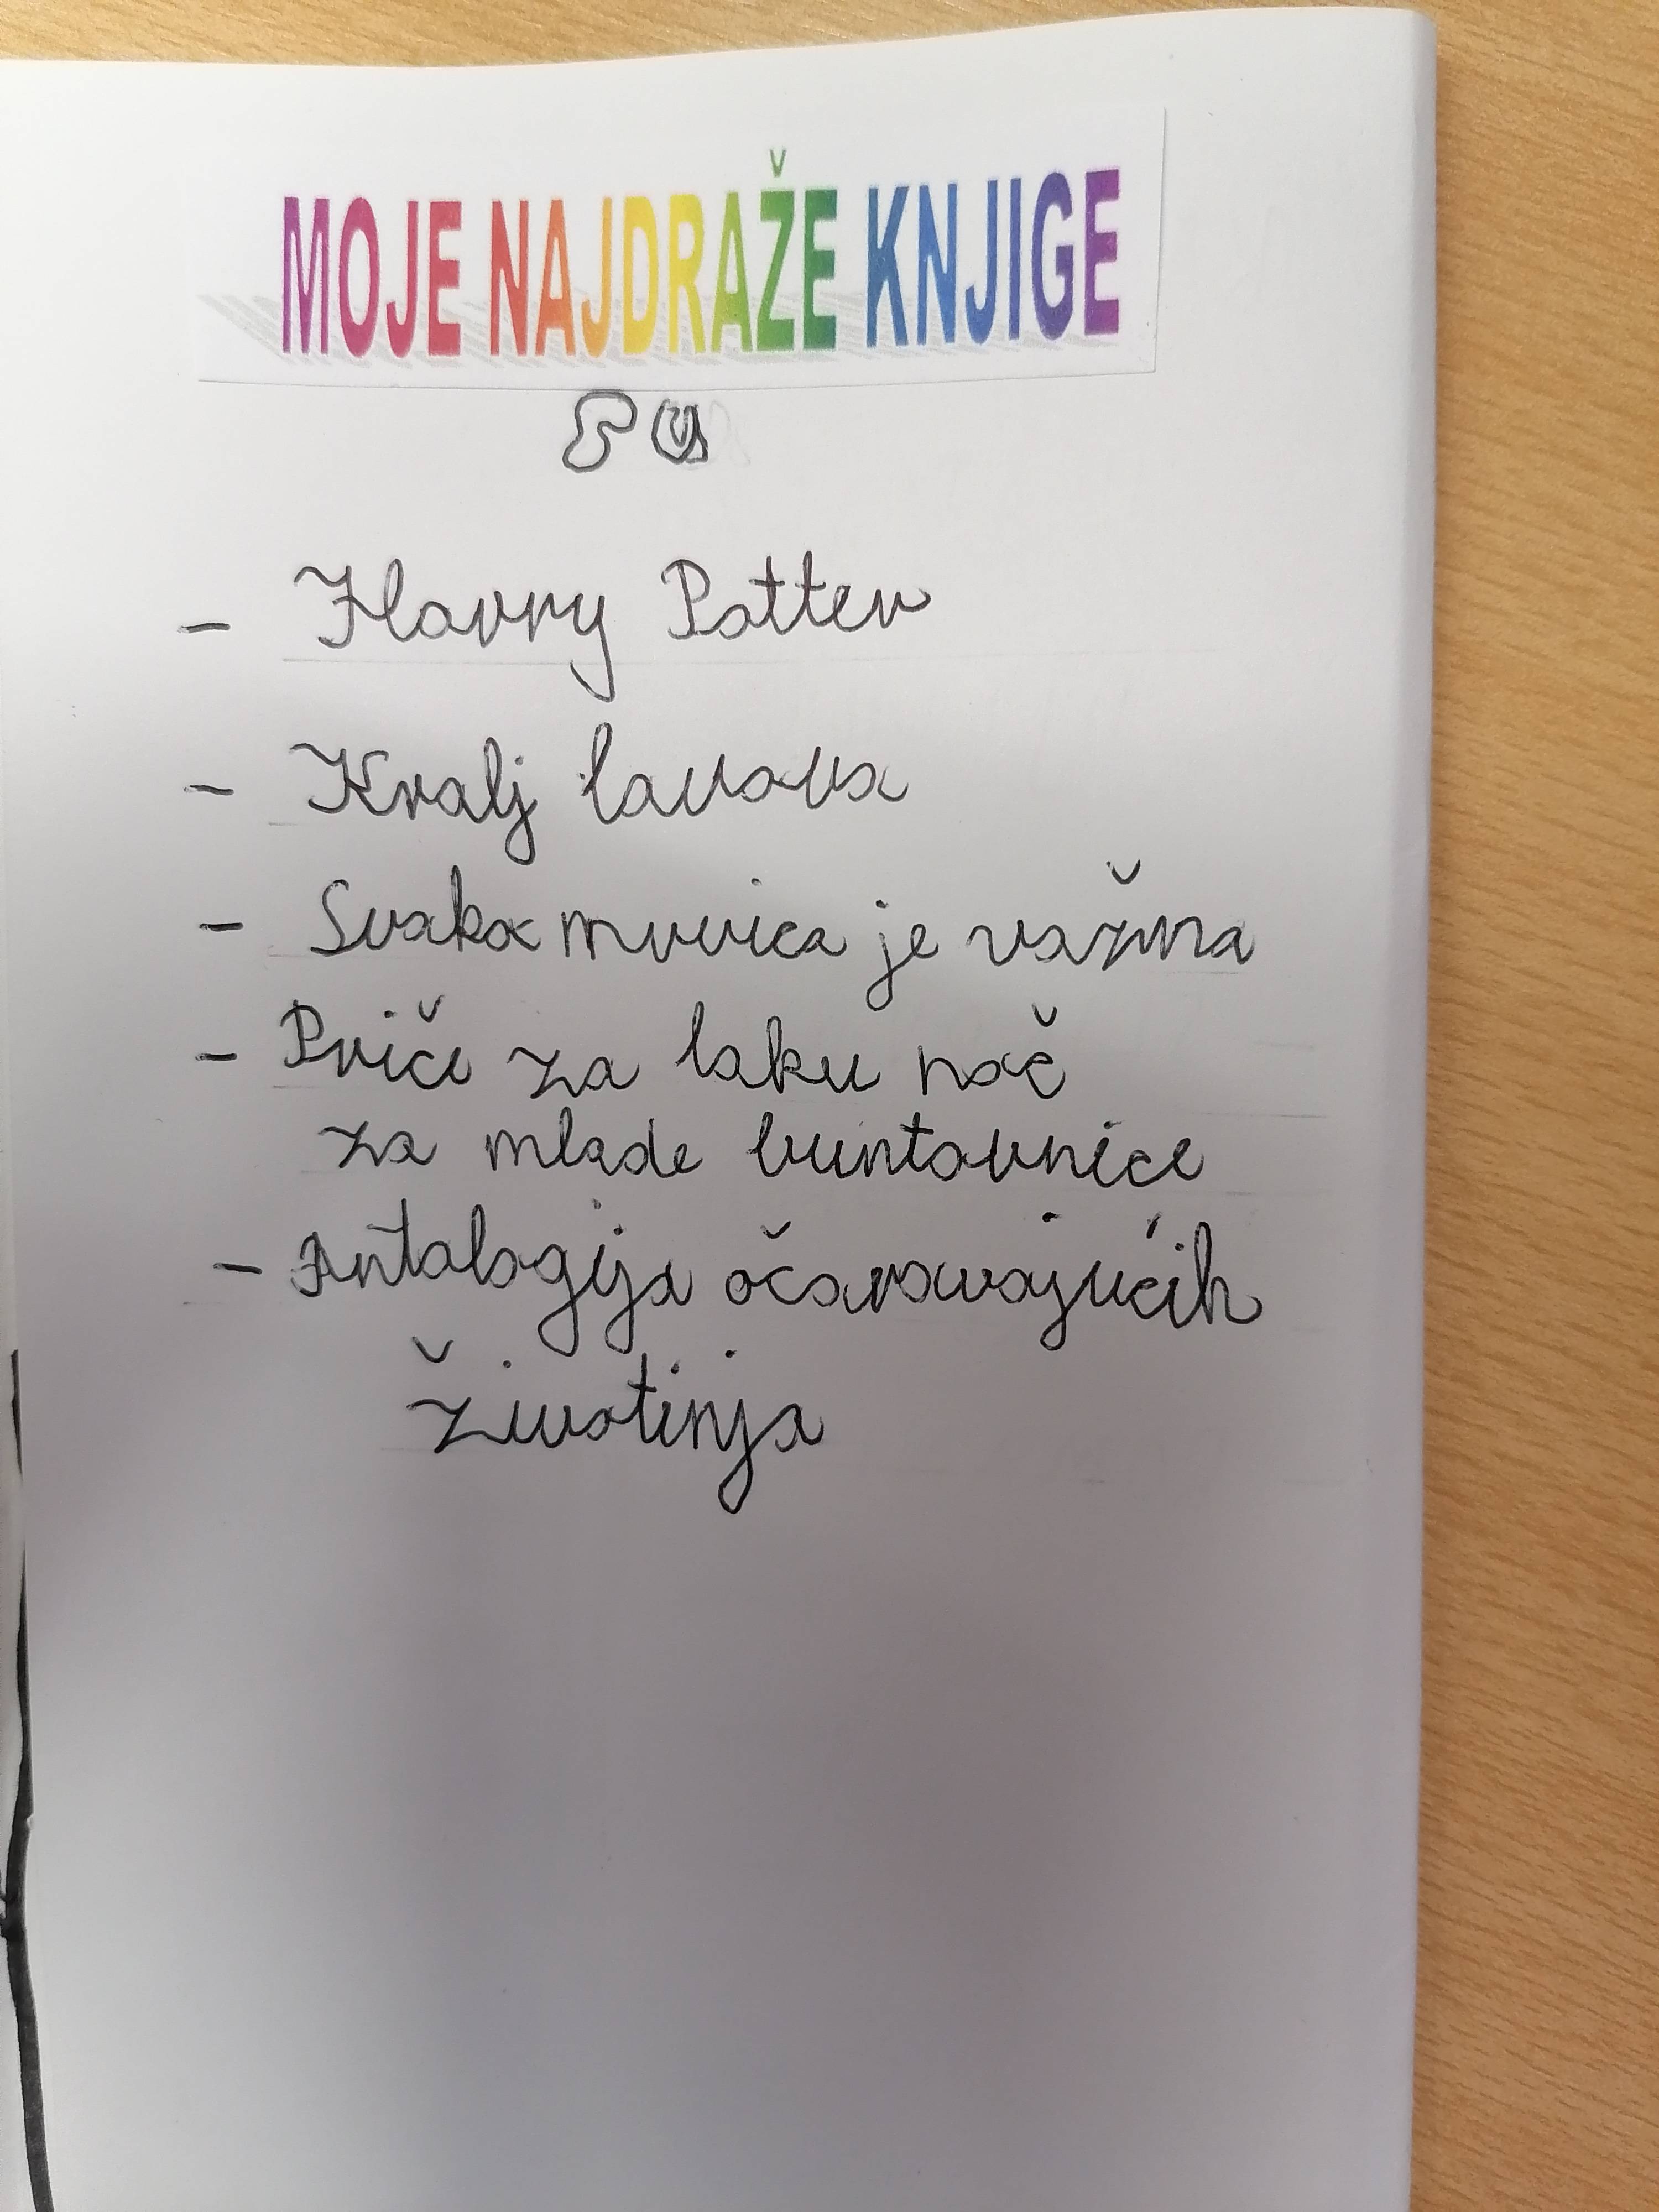 MOJE NAJDRAŽE KNJIGE
- Harry Potter
- Kralj lavova
- Svaka mrvica je važna
- Priče za laku noč
za mlade buntovnice
- Antologija očaravajućih
životinja